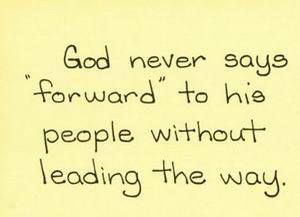 God never says
"forward" to his
people without
leading the way.